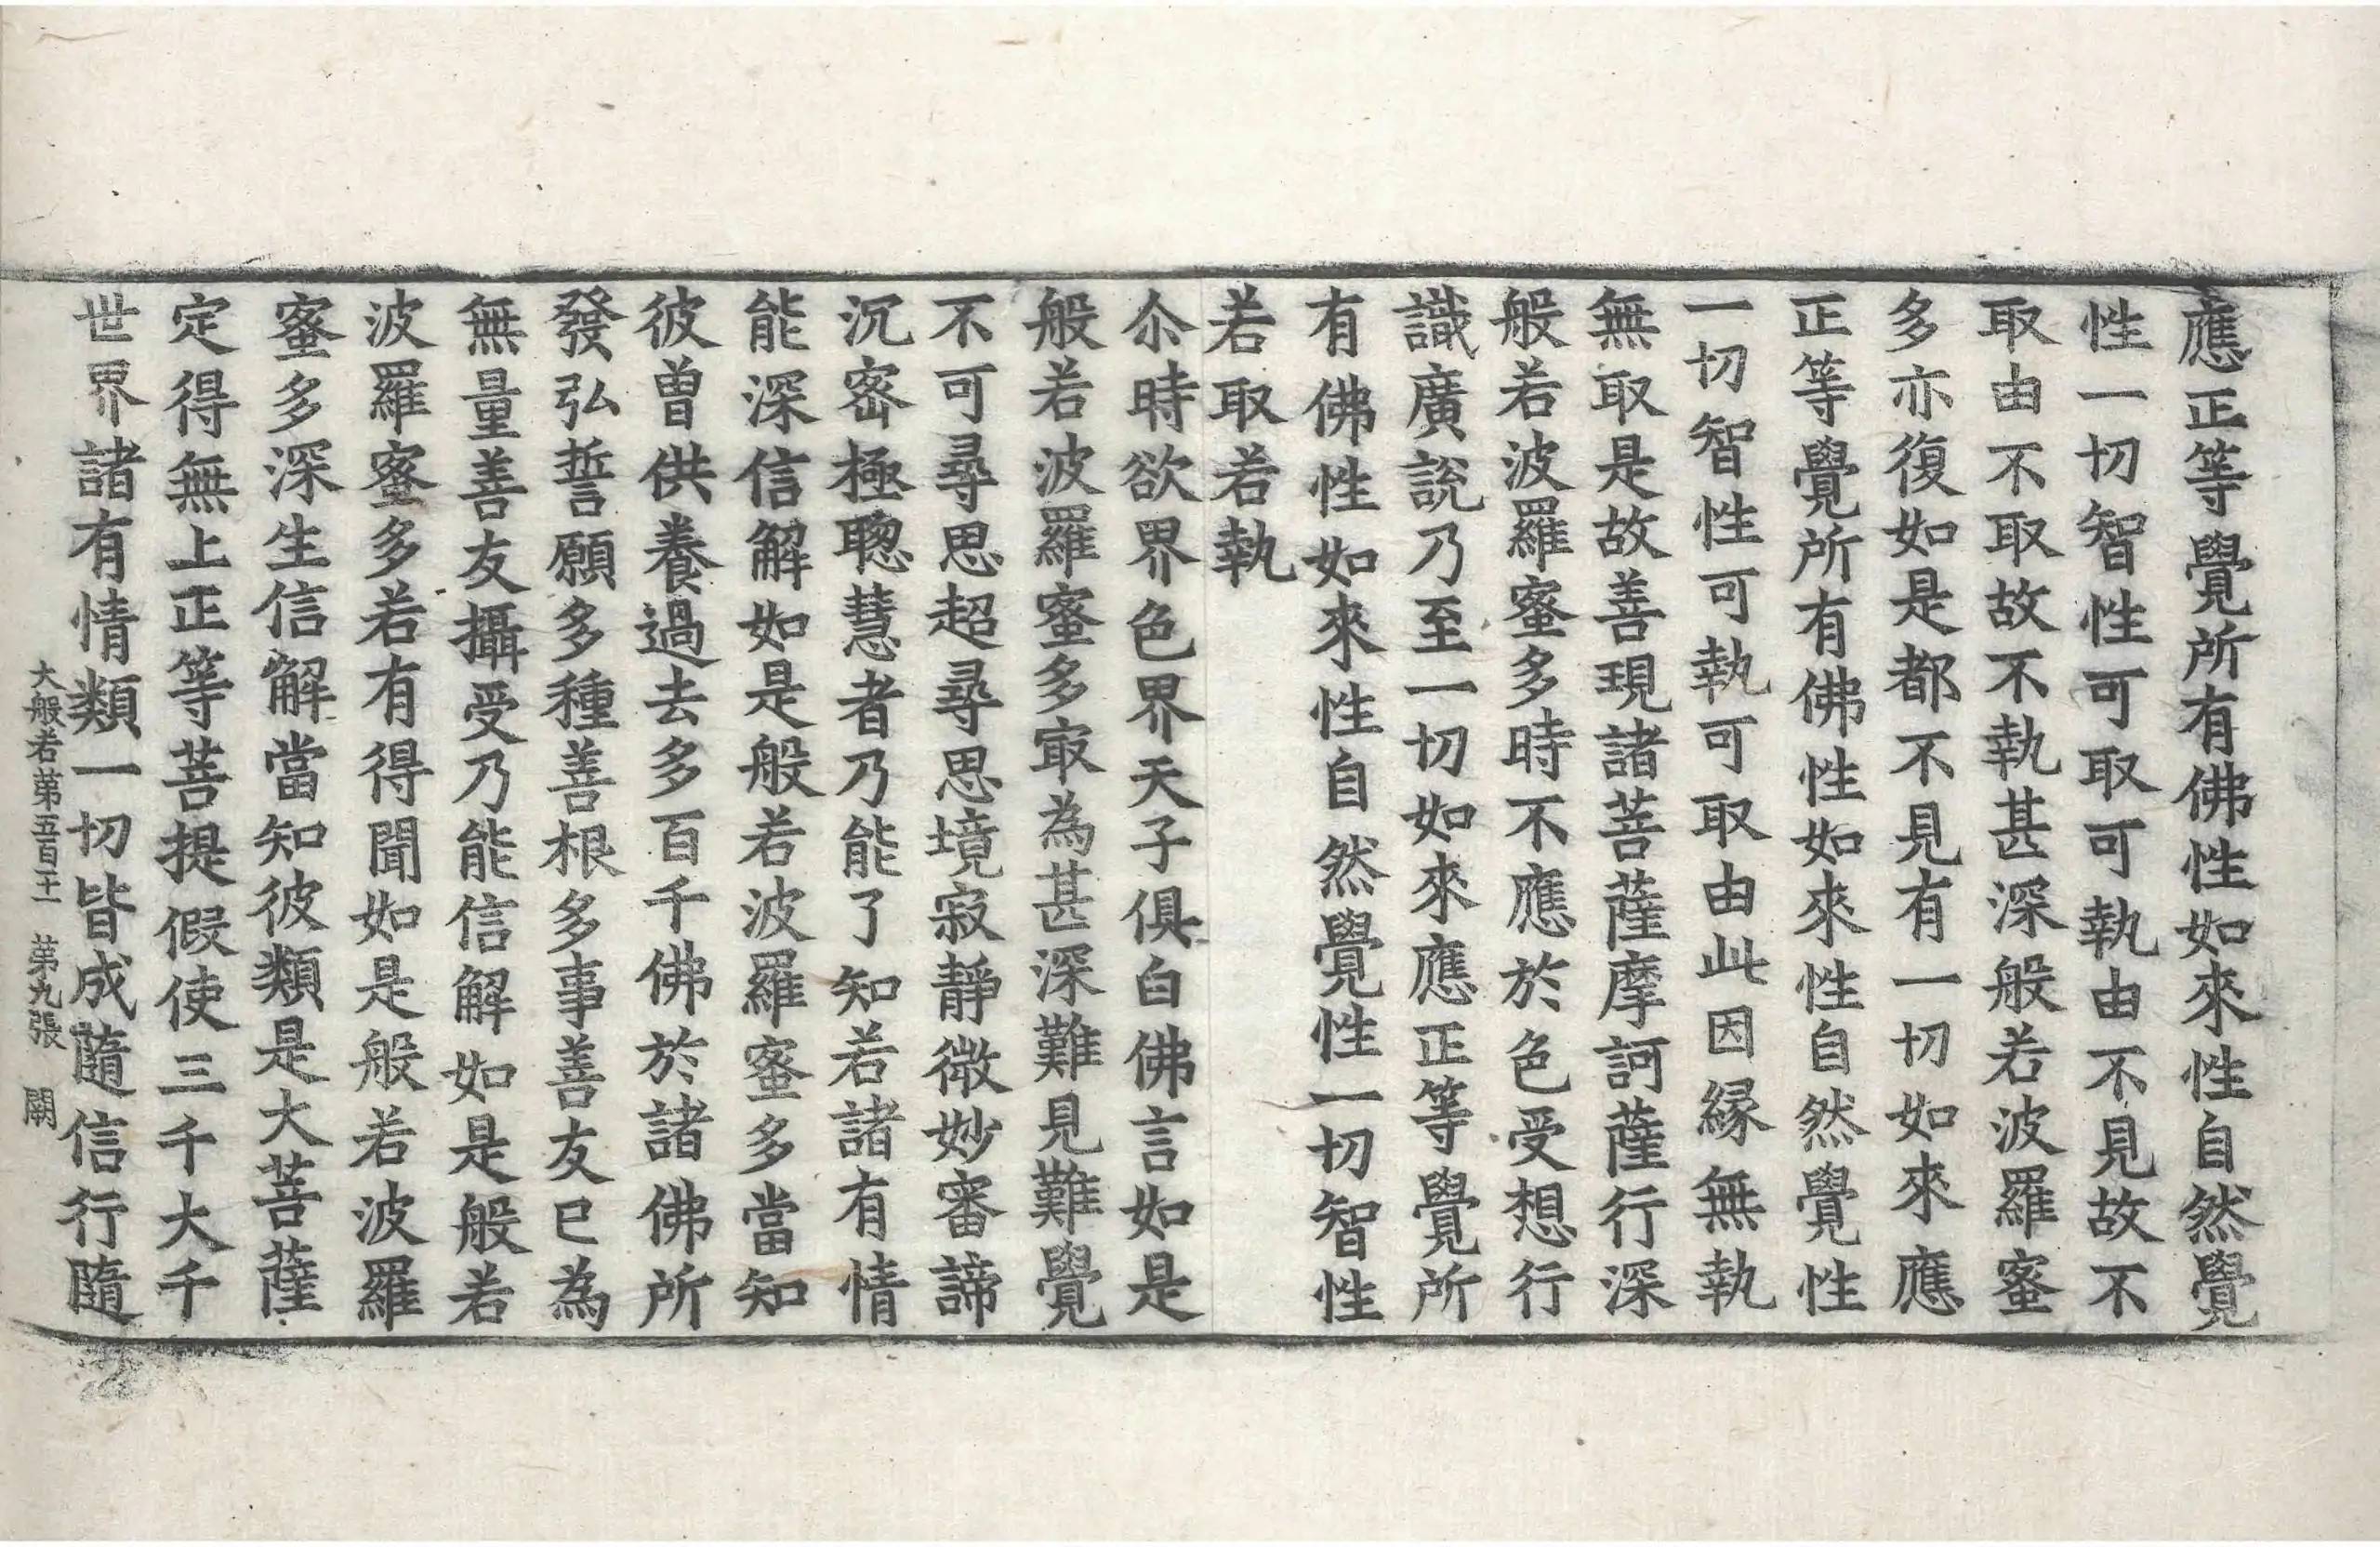 應正等覺所有佛性如來性自然覺
性一切智性可取可執由不見故不
取由不取故不執甚深般若波羅蜜
多亦復如是都不見有一切如來應
正等覺所有佛性如來性自然覺性
一切智性可執可取由此因緣無執
無取是故善現諸菩薩摩訶薩行深
般若波羅蜜多時不應於色受想行
識廣說乃至一切如來應正等覺所
有佛性如來性自然覺性一切智性
若取若執
尒時欲界色界天子俱白佛言如是
般若波羅蜜多㝡為甚深難見難覺
不可尋思超尋思境寂靜微妙審諦
沉密極聦慧者乃能了知若諸有情
能深信解如是般若波羅蜜多當知
彼曽供養過去多百千佛於諸佛所
發弘誓願多種善根多事善友已為
無量善友攝受乃能信解如是般若
波羅蜜多若有得聞如是般若波羅
蜜多深生信解當知彼類是大菩薩
定得無上正等菩提假使三千大千
世界諸有情類一切皆成隨信行隨
大般若第五百十二 第九張 闕